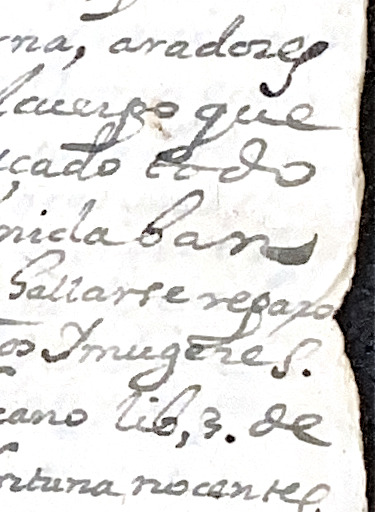 rna, aradores
l cuerpo que
cado todo
nida ban
hallarse regazo
os Imugeres.
cano lib, 3. de
fortuna nocentes